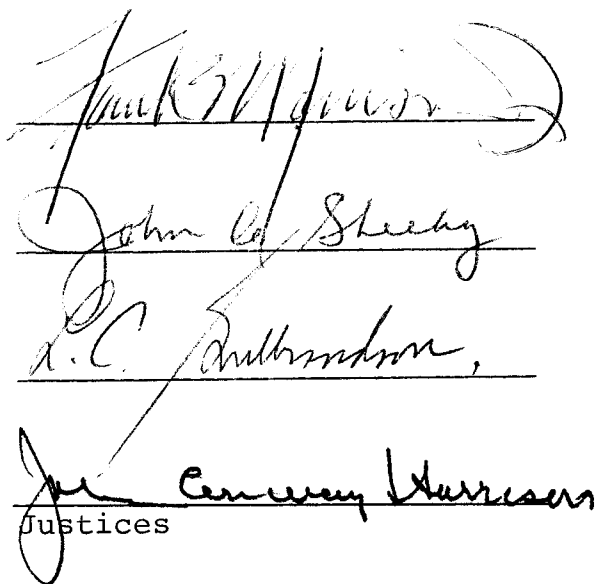 Frank B. Morrison Jr.
John C. Sheehy
L. C. Gulbrandson,
John Conway Harrison
Justices